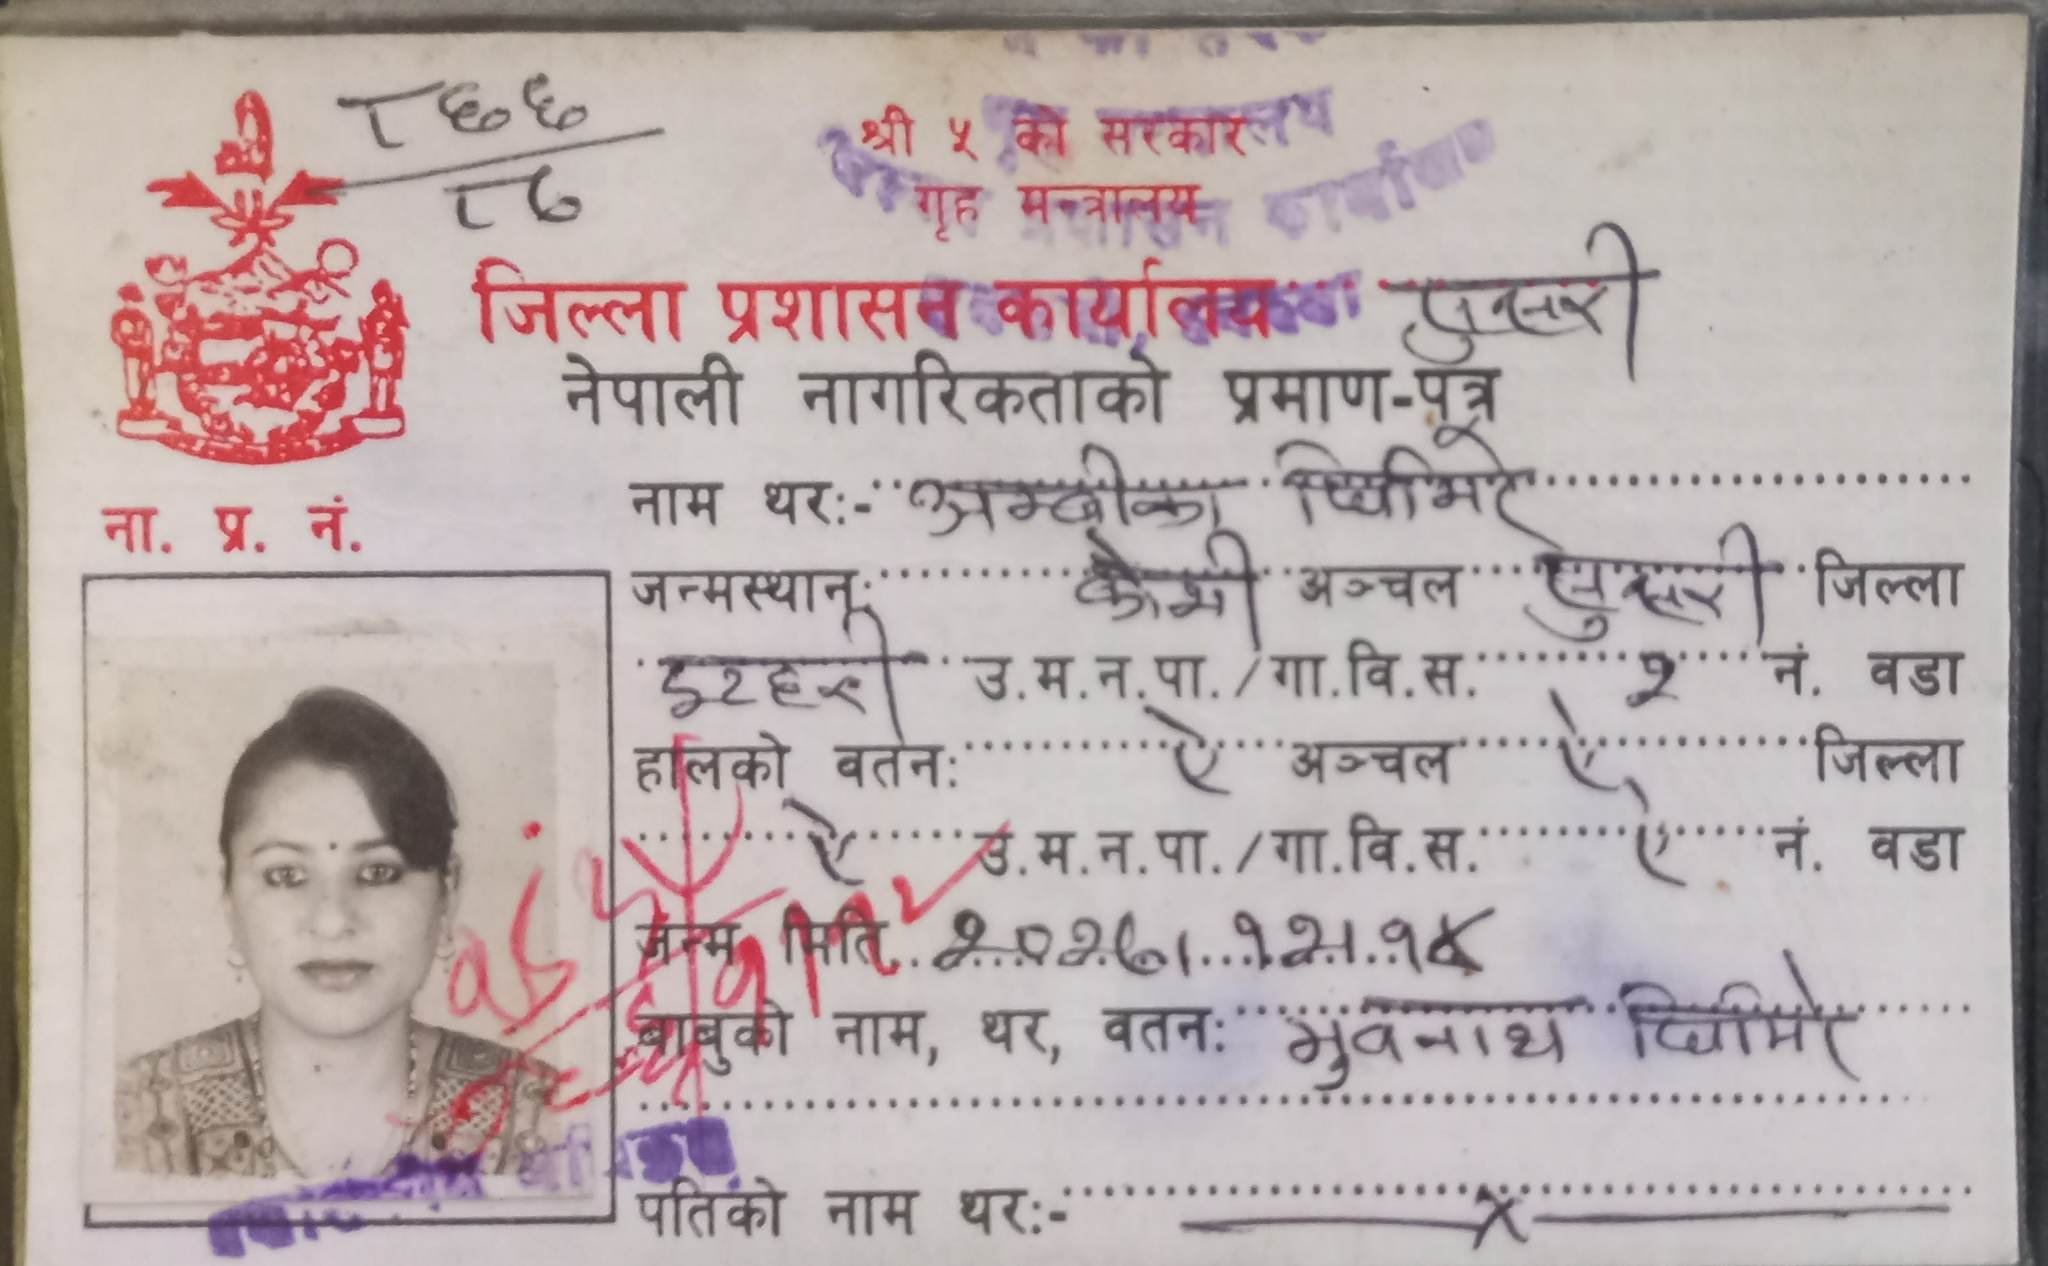 ८६६
८७
श्री ५ को सरकार
गृह मन्त्रालय
जिल्ला प्रशासन कार्यालय सुनसरी
नेपाली नागरिकताको प्रमाण-पत्र
ना. प्र. नं.
नाम थर:- अम्बीका घिमिरे
जन्मस्थान: कोशी अञ्चल सुनसरी जिल्ला
इटहरी उ.म.न.पा./गा.वि.स. २ नं. वडा
हालको वतन: ऐ अञ्चल ऐ जिल्ला
ऐ उ.म.न.पा./गा.वि.स. ऐ नं. वडा
जन्म मिति २०२७।१२।१५
बाबुको नाम, थर, वतन: घिमिरे
पतिको नाम थर:- x